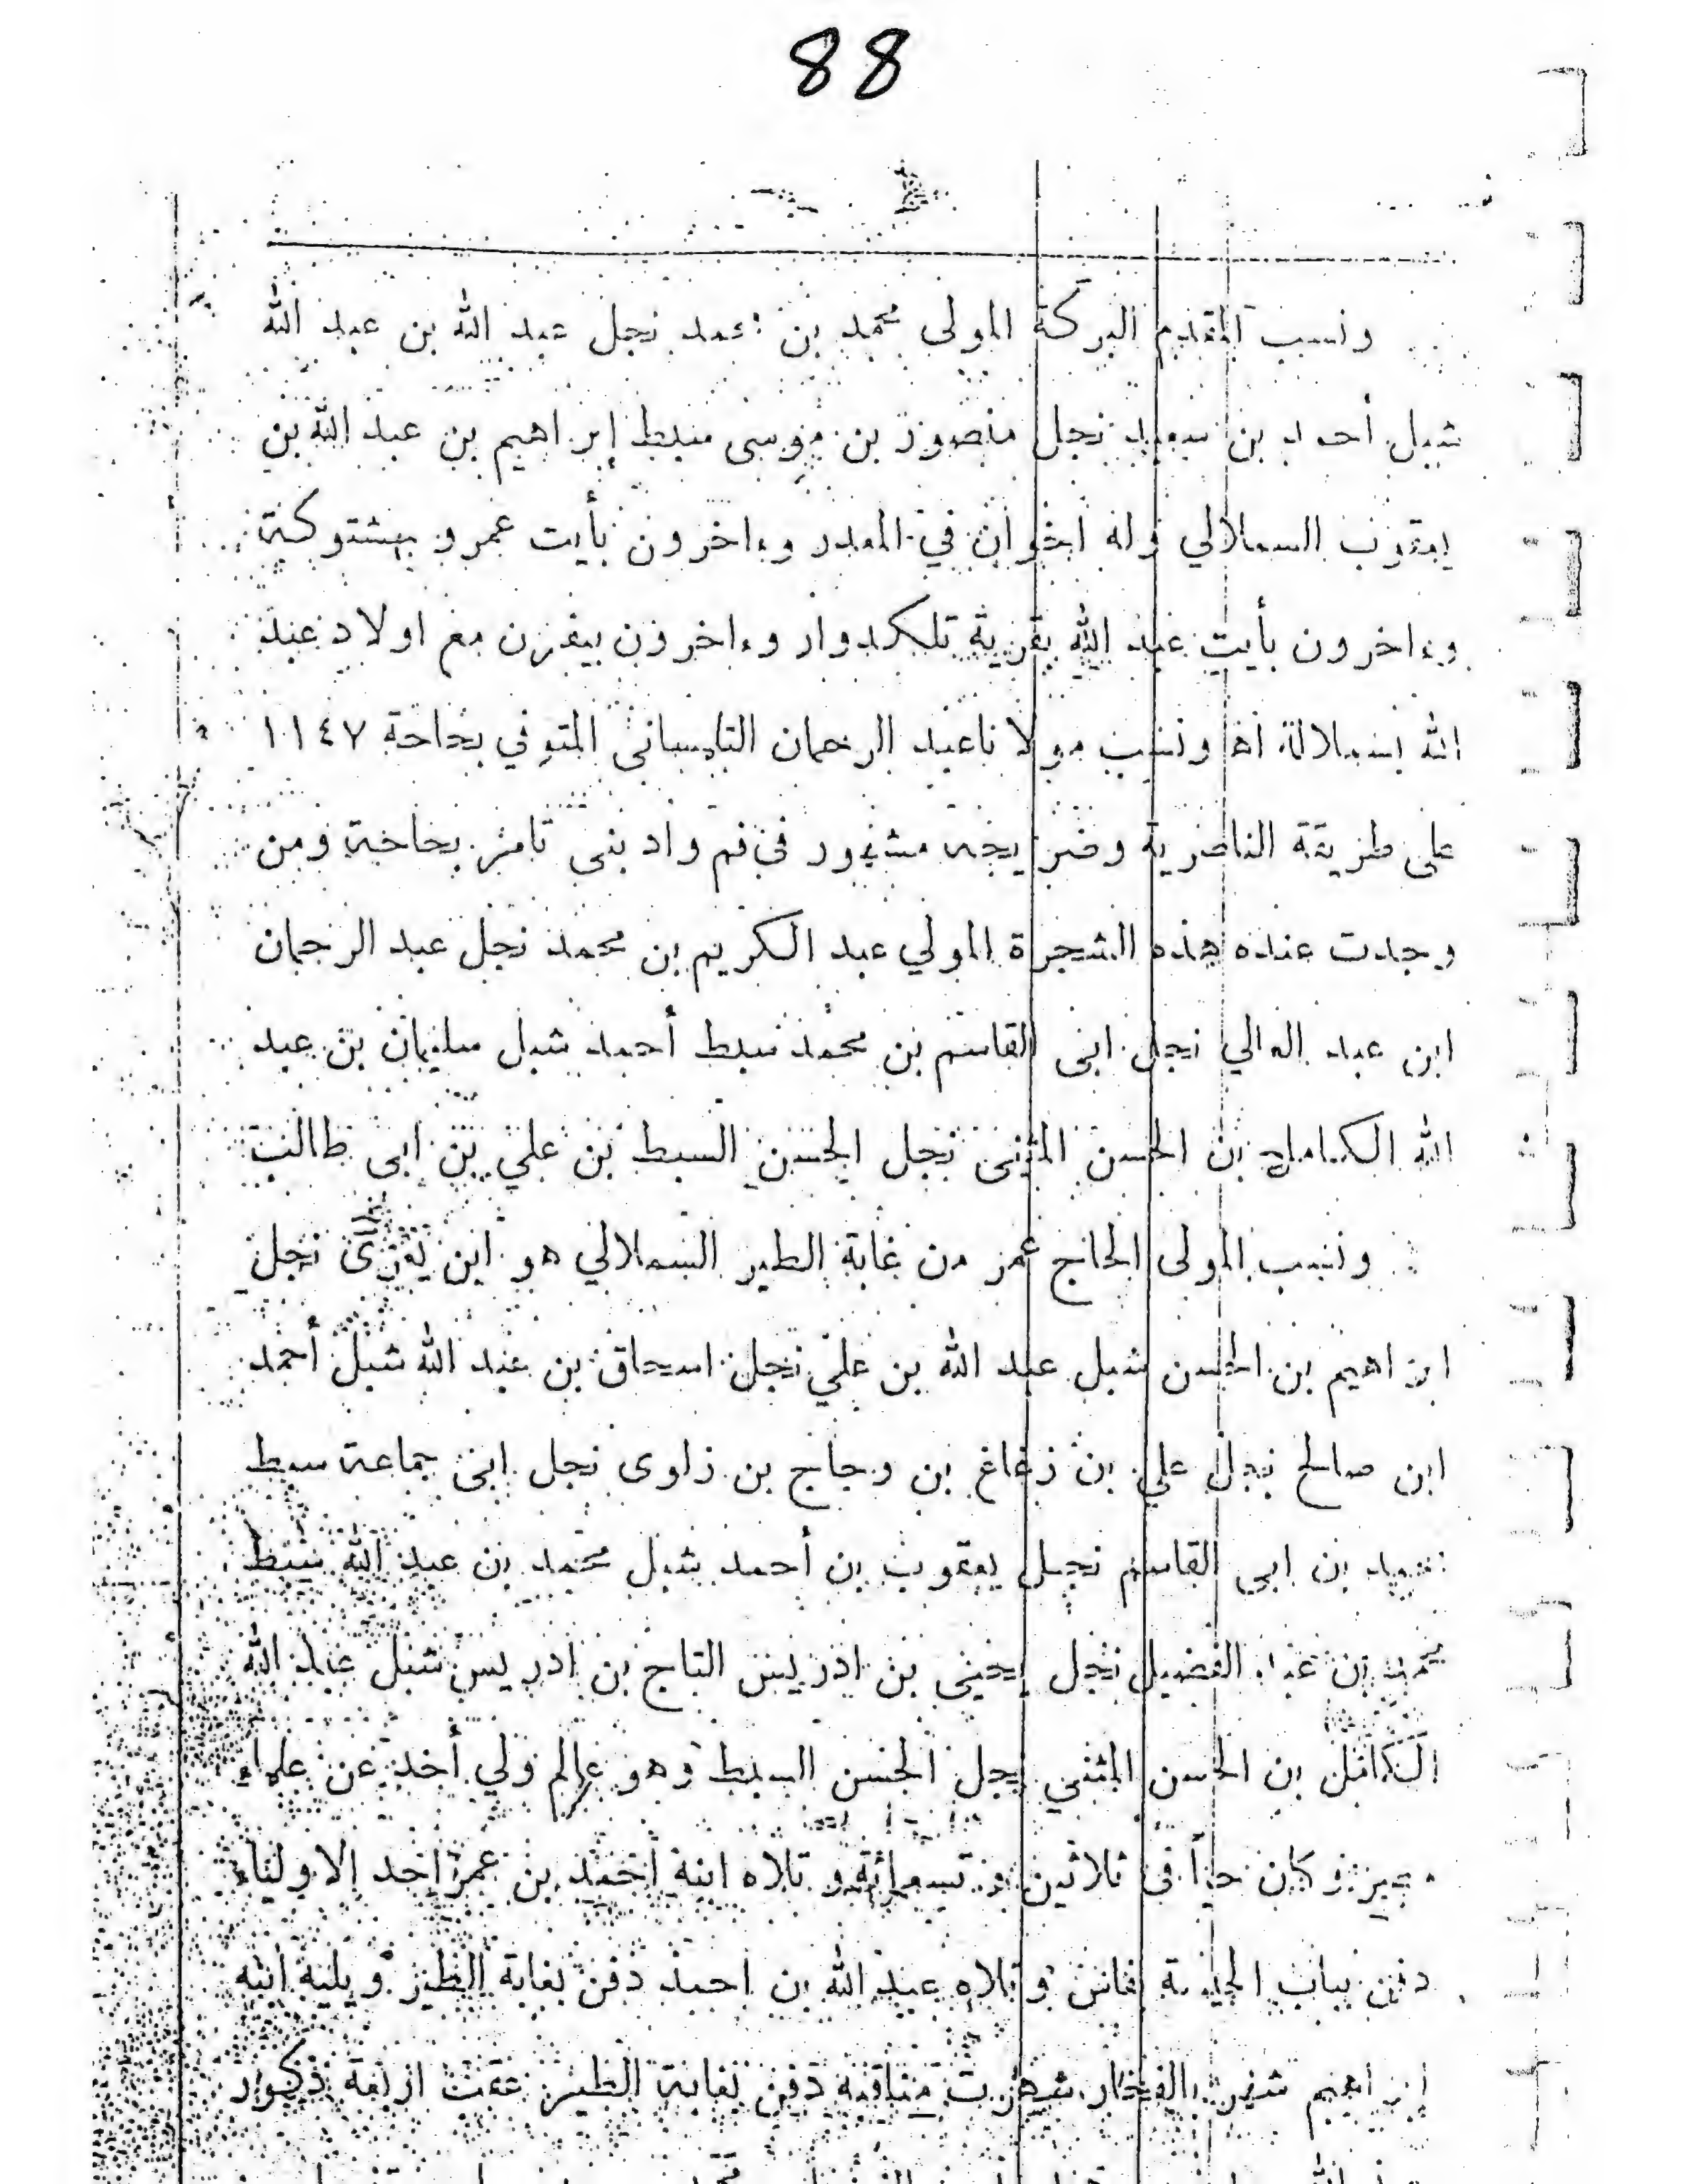 88
ونسب المقدم البركة المولى محمد بن نجل عبد الله بن عبد الله
شبل أحمد بن سعيد نجل منصور بن موسى سبط إبراهيم بن عبد الله بن
يعقوب السملالي وله اخوان في المعدر وءاخرون بأيت عمرو بهشتوكة
وءاخرون بأيت عبد الله بقرية تلكدوار وءاخرون بيفرن مع اولاد عبد
الله بسملالة اه ونسب مولانا عبد الرحمان التلمسانى المتوفي بحاحة ١١٤٧
على طريقة الناصرية وضريحه مشهور في فم واد بنى تامر بحاحة ومن
وجدت عنده هذه الشجرة المولي عبد الكريم بن محمد نجل عبد الرحمان
ابن عبد العالي نجل ابى القاسم بن محمد سبط أحمد شبل سليمان بن عبد
الله الكامل بن الحسن المثنى نجل الحسن السبط بن علي بن ابى طالب
ونسب المولى الحاج عمر من غابة الطير السملالي هو ابن نجل
ابراهيم بن الحسن شبل عبد الله بن علي نجل اسحاق بن عبد الله شبل أحمد
ابن صالح نجل علي بن زغاغ بن وجاج بن زلوى نجل ابى جماعة سبط
بن ابى القاسم نجل يعقوب بن أحمد شبل محمد بن عبد الله سبط
محمد بن عبد الفضيل نجل يحيى بن ادريس التاج بن ادريس شبل عبد الله
الكامل بن الحسن المثنى نجل الحسن السبط وهو عالم ولي أخذ عن علماء
وكان حيا فى ثلاثين وتسعمائة و تلاه ابنه احمد بن عمر احد الاولياء
دفن بباب بفاس و تلاه عبد الله بن احمد دفن بغابة الطير و يليه ابنه
إبراهيم شهرت مناقبه دفن بغابة الطير عقب اربعة ذكور